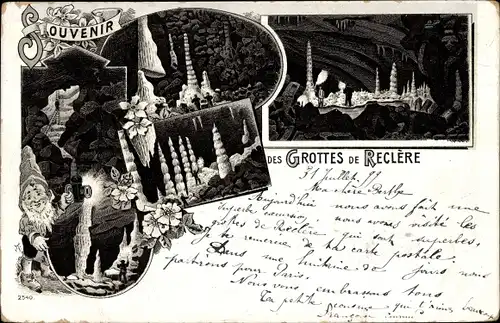 SOUVENIR
DES GROTTES DE RECLÈRE
31 Juillet
Ma chère
Aujourd'hui nous avons fait une
superbe nous avons visité les
grottes de Réclère qui sont superbes,
je te remercie de ta carte postale.
Dans une huitaine de jours nous
partirons pour Paris.
Nous vous embrassons tous
Ta petite cousine qui t'aime beaucoup
Françoise
2540